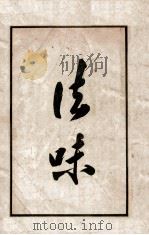 法
味
mtoou.info